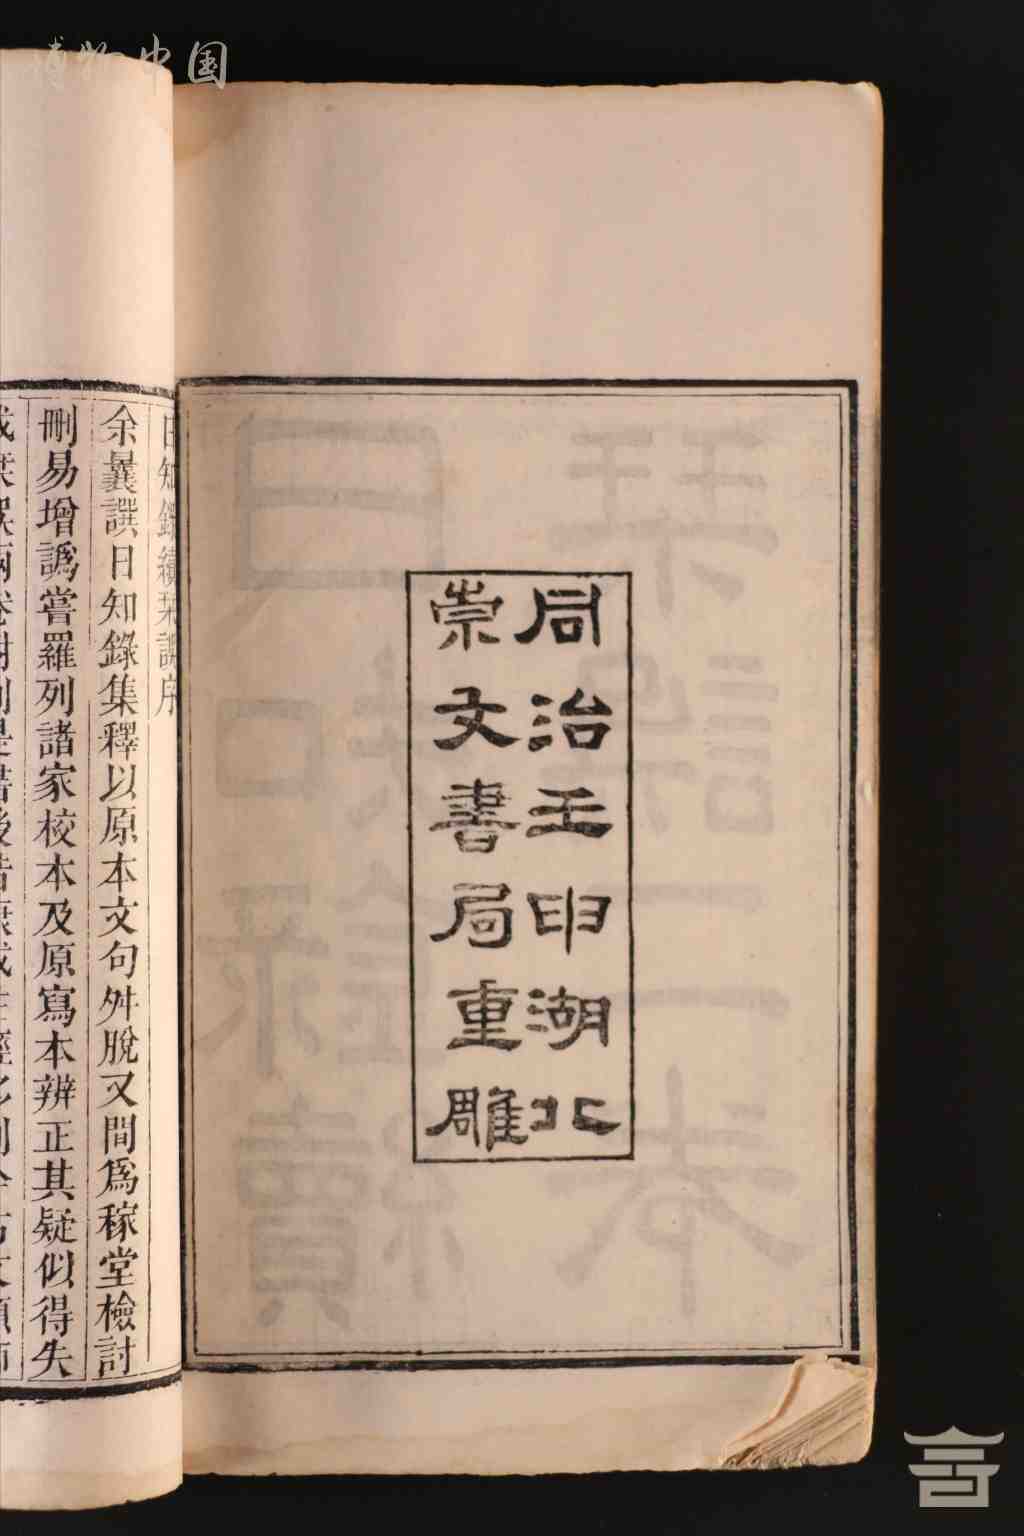 博物中国
同治壬申湖北
崇文書局重雕
日知錄續栞誤序
余曩譔日知錄集釋以原本文句舛脫又間爲稼堂檢討
刪易增譌嘗羅列諸家校本及原寫本辨正其疑似得失